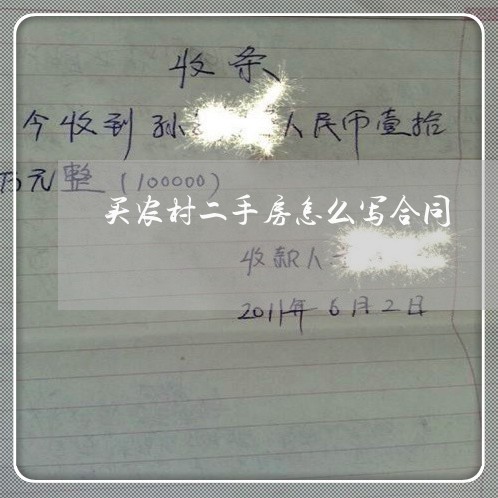 收条
今收到孙 人民币壹拾
万元整（100000）
买农村二手房怎么写合同
收款人
2011年6月2日